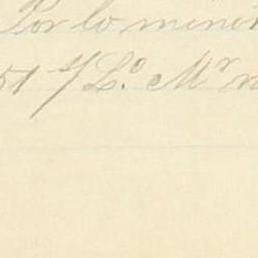 Por lo minis
51 s/Lo. Mr n